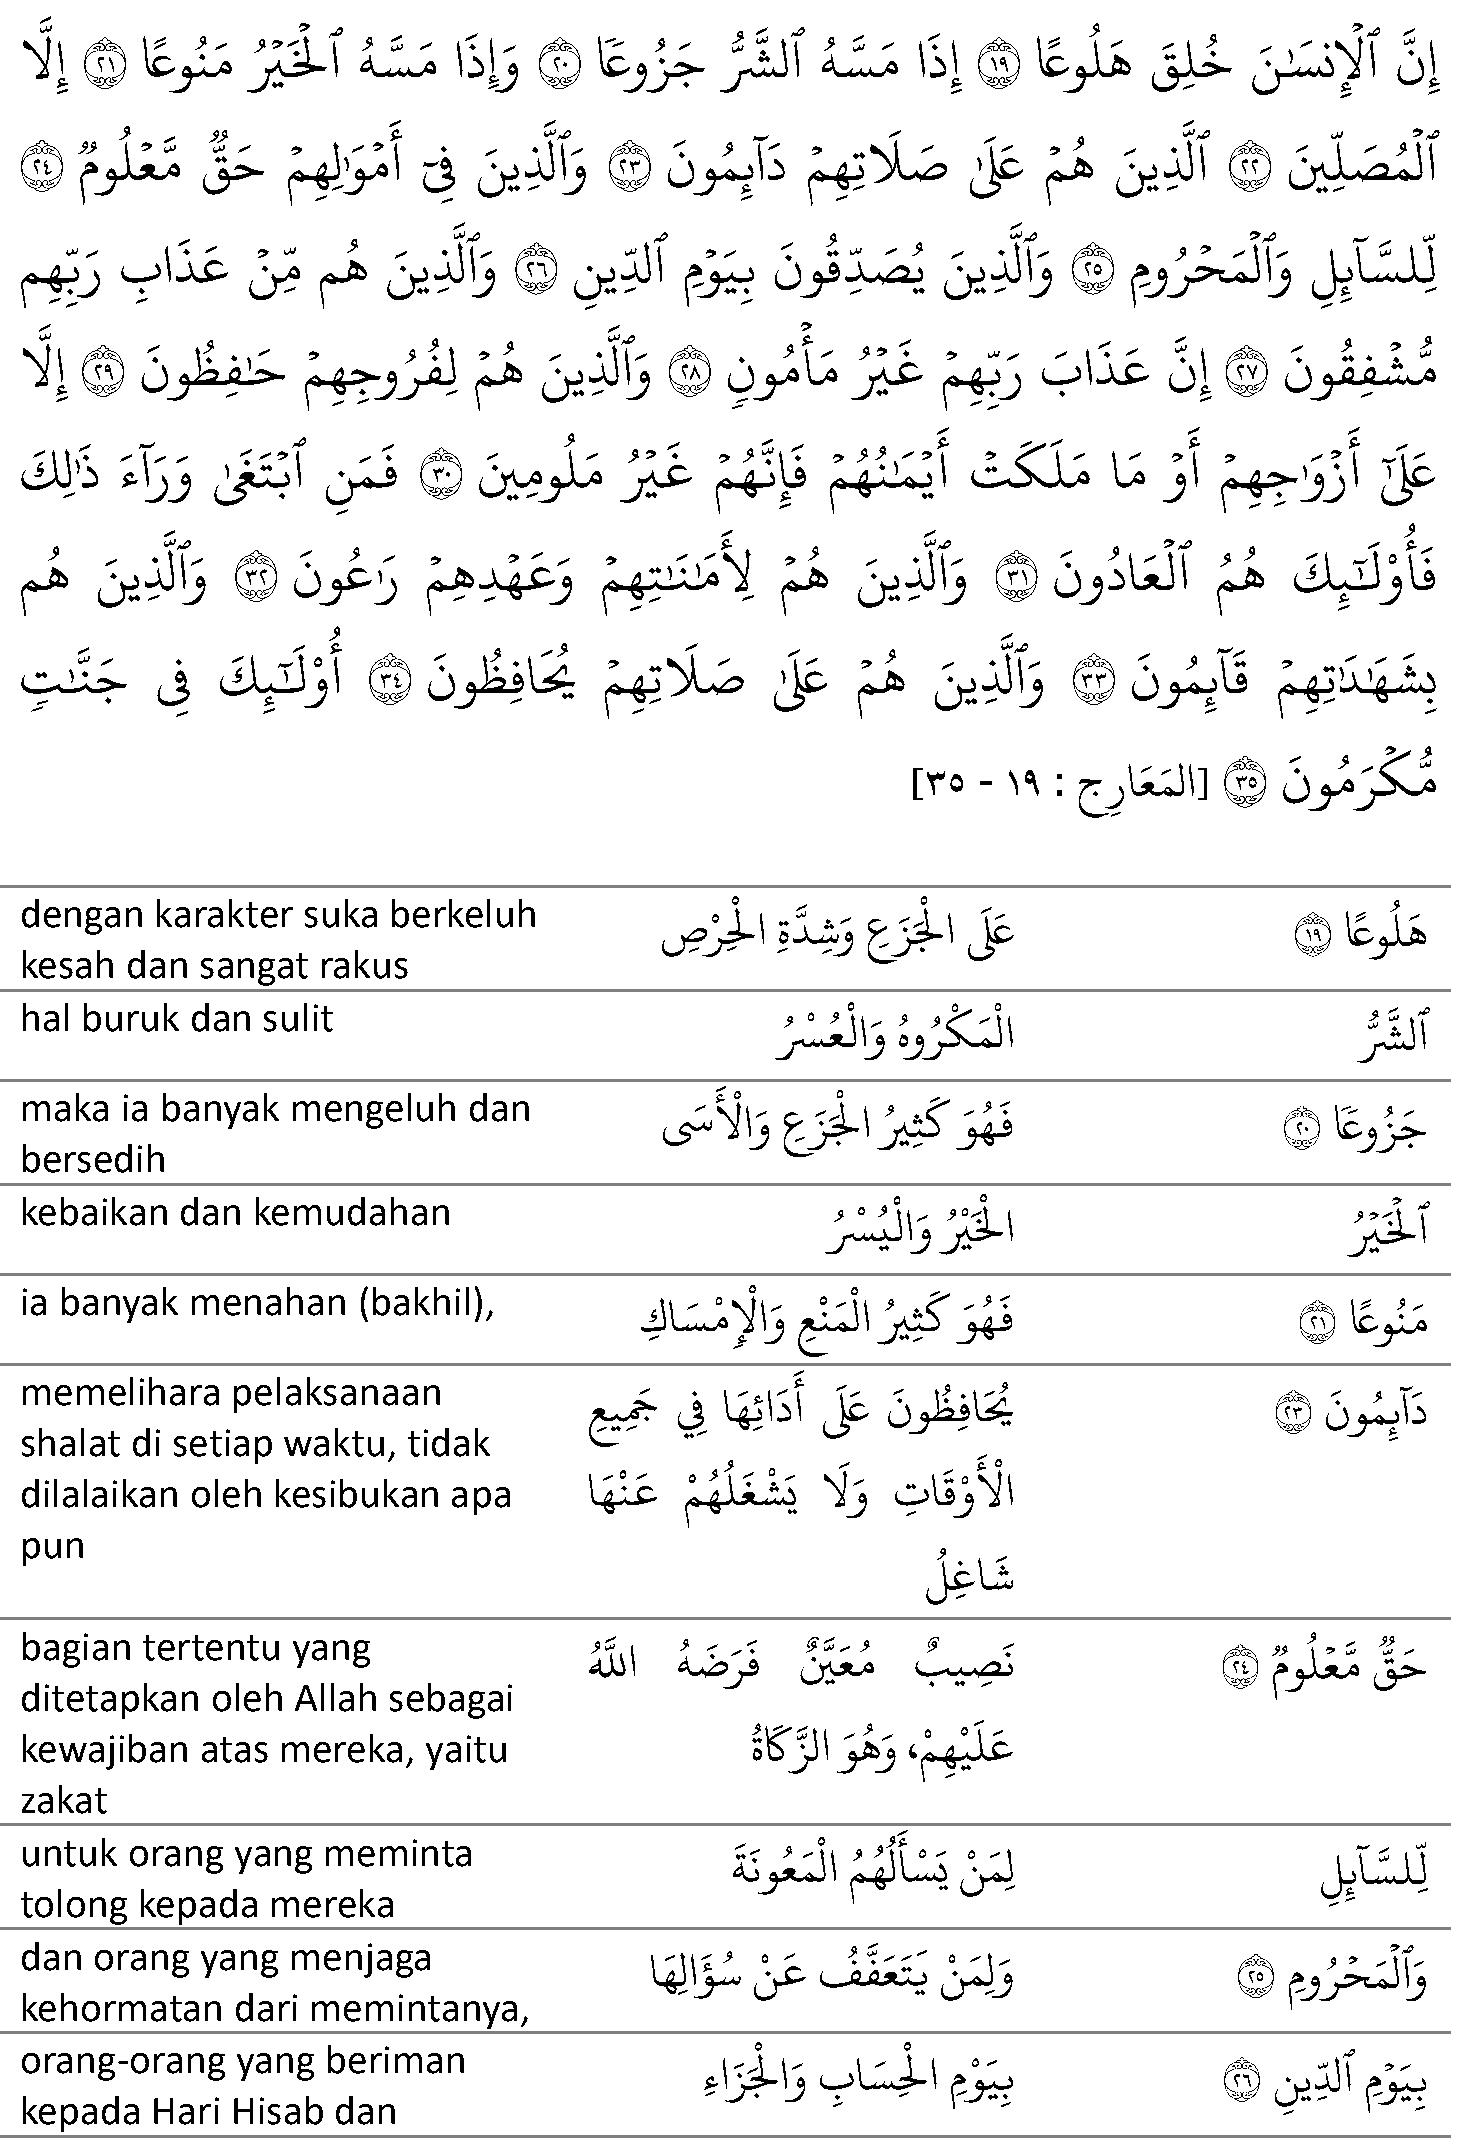 إِنَّ ٱلْإِنسَٰنَ خُلِقَ هَلُوعًا ١٩ إِذَا مَسَّهُ ٱلشَّرُّ جَزُوعٗا ٢٠ وَإِذَا مَسَّهُ ٱلْخَيْرُ مَنُوعًا ٢١ إِلَّا
ٱلْمُصَلِّينَ ٢٢ ٱلَّذِينَ هُمْ عَلَىٰ صَلَاتِهِمْ دَآئِمُونَ ٢٣ وَٱلَّذِينَ فِيٓ أَمْوَٰلِهِمْ حَقّٞ مَّعْلُومٞ ٢٤
لِّلسَّآئِلِ وَٱلْمَحْرُومِ ٢٥ وَٱلَّذِينَ يُصَدِّقُونَ بِيَوْمِ ٱلدِّينِ ٢٦ وَٱلَّذِينَ هُم مِّنْ عَذَابِ رَبِّهِم
مُّشْفِقُونَ ٢٧ إِنَّ عَذَابَ رَبِّهِمْ غَيْرُ مَأْمُونٖ ٢٨ وَٱلَّذِينَ هُمْ لِفُرُوجِهِمْ حَٰفِظُونَ ٢٩ إِلَّا
عَلَىٰٓ أَزْوَٰجِهِمْ أَوْ مَا مَلَكَتْ أَيْمَٰنُهُمْ فَإِنَّهُمْ غَيْرُ مَلُومِينَ ٣٠ فَمَنِ ٱبْتَغَىٰ وَرَآءَ ذَٰلِكَ
فَأُوْلَٰٓئِكَ هُمُ ٱلْعَادُونَ ٣١ وَٱلَّذِينَ هُمْ لِأَمَٰنَٰتِهِمْ وَعَهْدِهِمْ رَٰعُونَ ٣٢ وَٱلَّذِينَ هُم
بِشَهَٰدَٰتِهِمْ قَآئِمُونَ ٣٣ وَٱلَّذِينَ هُمْ عَلَىٰ صَلَاتِهِمْ يُحَافِظُونَ ٣٤ أُوْلَٰٓئِكَ فِي جَنَّٰتٖ
مُّكْرَمُونَ ٣٥ [المَعَارِج : ١٩ - ٣٥]
هَلُوعًا ١٩ عَلَى الْجَزَعِ وَشِدَّةِ الْحِرْصِ dengan karakter suka berkeluh
kesah dan sangat rakus
ٱلشَّرُّ الْمَكْرُوهُ وَالْعُسْرُ hal buruk dan sulit
جَزُوعٗا ٢٠ فَهُوَ كَثِيرُ الْجَزَعِ وَالْأَسَى maka ia banyak mengeluh dan
bersedih
ٱلْخَيْرُ الْخَيْرُ وَالْيُسْرُ kebaikan dan kemudahan
مَنُوعًا ٢١ فَهُوَ كَثِيرُ الْمَنْعِ وَالْإِمْسَاكِ ia banyak menahan (bakhil),
دَآئِمُونَ ٢٣ يُحَافِظُونَ عَلَى أَدَائِهَا فِي جَمِيعِ memelihara pelaksanaan
shalat di setiap waktu, tidak
الْأَوْقَاتِ وَلَا يَشْغَلُهُمْ عَنْهَا dilalaikan oleh kesibukan apa
شَاغِلُ pun
حَقّٞ مَّعْلُومٞ ٢٤ نَصِيبٌ مُعَيَّنٌ فَرَضَهُ اللَّهُ bagian tertentu yang
ditetapkan oleh Allah sebagai
عَلَيْهِمْ، وَهُوَ الزَّكَاةُ kewajiban atas mereka, yaitu
zakat
لِّلسَّآئِلِ لِمَنْ يَسْأَلُهُمُ الْمَعُونَةَ untuk orang yang meminta
tolong kepada mereka
وَٱلْمَحْرُومِ ٢٥ وَلِمَنْ يَتَعَفَّفُ عَنْ سُؤَالِهَا dan orang yang menjaga
kehormatan dari memintanya,
بِيَوْمِ ٱلدِّينِ ٢٦ بِيَوْمِ الْحِسَابِ وَالْجَزَاءِ orang-orang yang beriman
kepada Hari Hisab dan